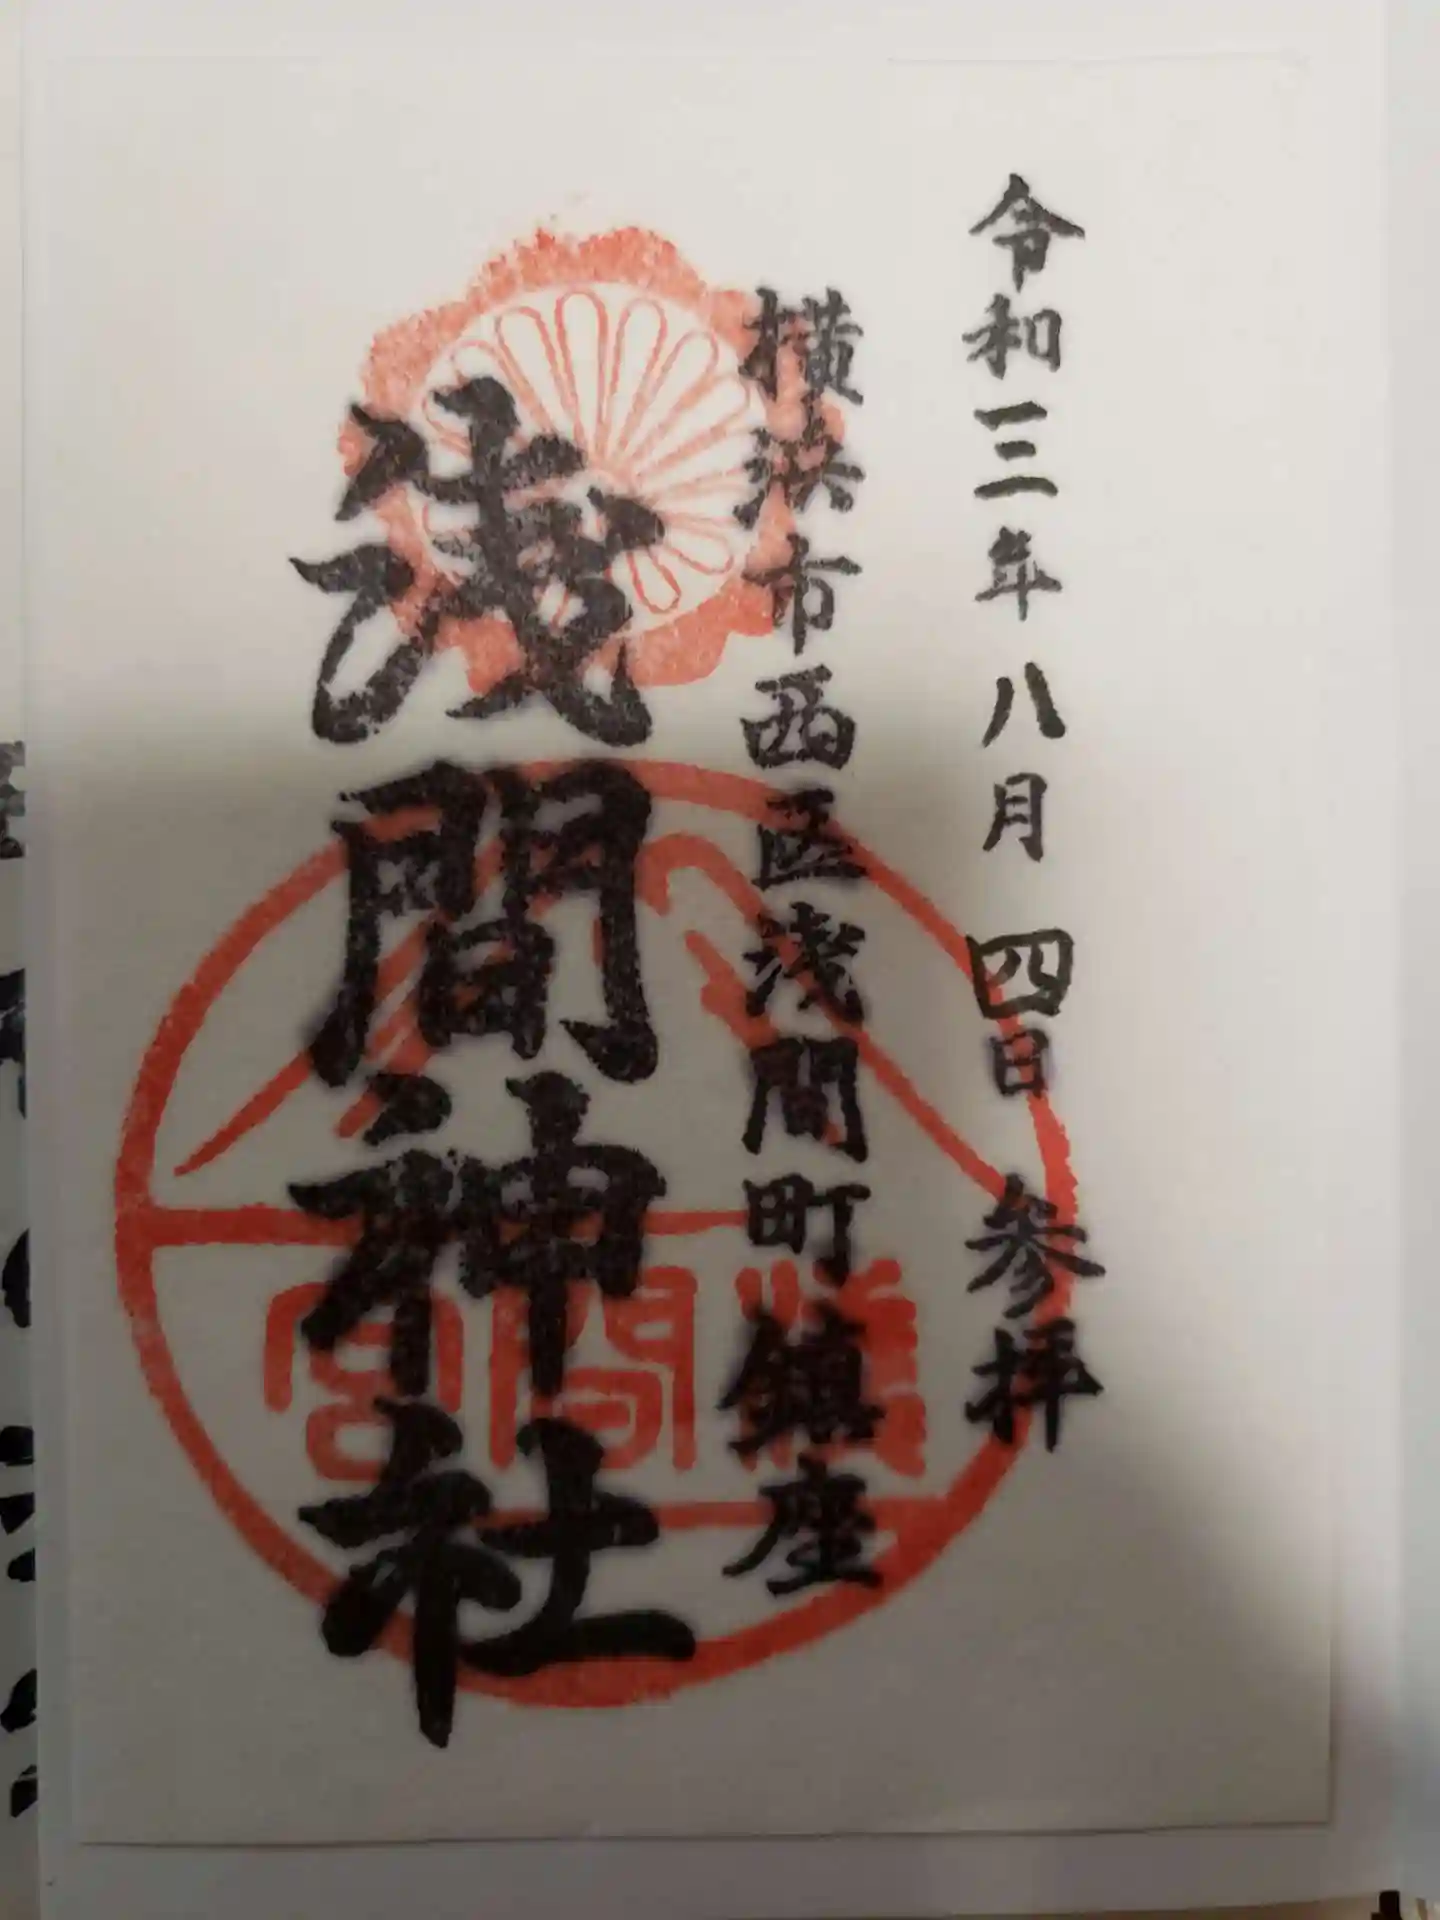 令和三年八月四日 参拝
横浜市西区浅間町鎮座
浅間神社
浅間宮